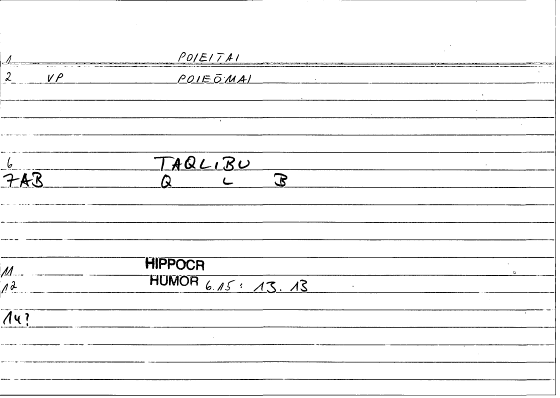 1 POIEITAI
2 VP POIEŌMAI
6 TAQLIBU
7AB Q L B
11 HIPPOCR
12 HUMOR 6.15: 13.13
14?